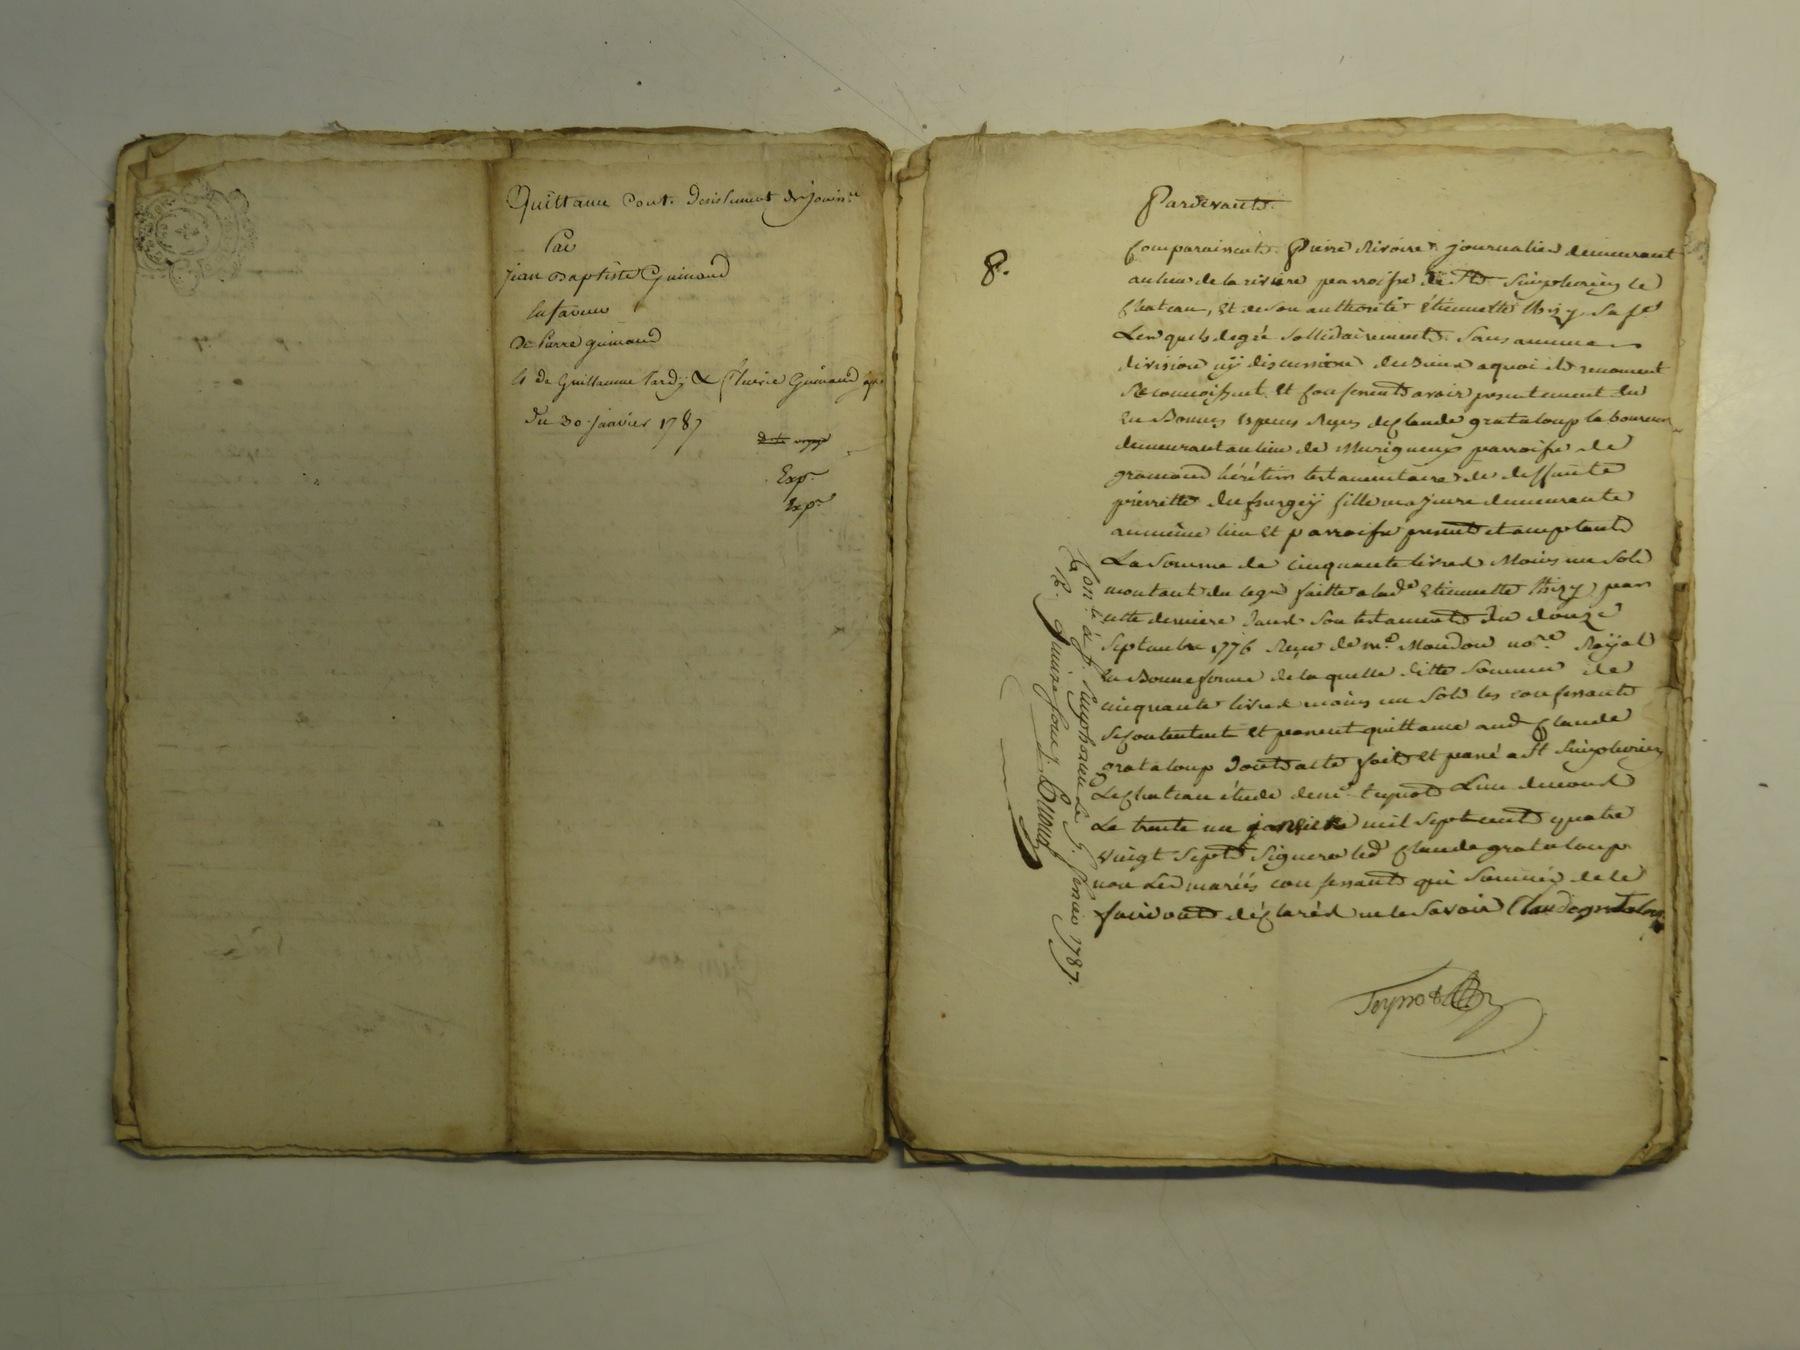 Quittance Cont. Desistement de jouin.ce
Par
Jean Baptiste Guinaud
En faveur
De Pierre guinaud
& de Guillaume Tardy & Guinaud
Du 30 janvier 1787
Exp.
Exp.
8.
Pardevants.
Comparaissent Pierre Rivoire journalier demeurant
au lieu de la riviere parroisse de St Simphorien le
Chateau, Et de son authorité Etiennette thizy sa fe
Lesquels de gré sollidairement sans aucune
division ny discussion de Biens a quoi ils renoncent
Reconnoissent et confessent avoir presentement eu
En Bonnes Especes Reçus de Claude grataloup laboureur
demeurant au lieu de Murigneux parroisse de
gramond héritier testamentaire de deffunte
pierrette dufurgey fille majeure demeurante
au meme lieu et parroisse present et acceptant
La Somme de cinquante livres Moins un Sold
montant du legs faitte a lade Etiennette thizy par
cette derniere dans son testament du douze
Septembre 1776 Reçu de me Moudon nore Royal
En Bonne forme de la quelle ditte Somme de
cinquante livres moins un Sold les confessants
se contentent et passent quittance aud Claude
grataloup dont acte fait et passé a St Simphorien
Le Chateau étude de me teynot L'un de nous
Le trente un janvier mil Sept cent quatre
vingt Sept Signera led Claude grataloup
non Les mariés confessants qui Sommés de le
faire ont déclarés ne le Savoir Claude grataloup
Teynot
Con.lé à St. Simphorien Le 5. fevrier 1787.
R. quinze sous